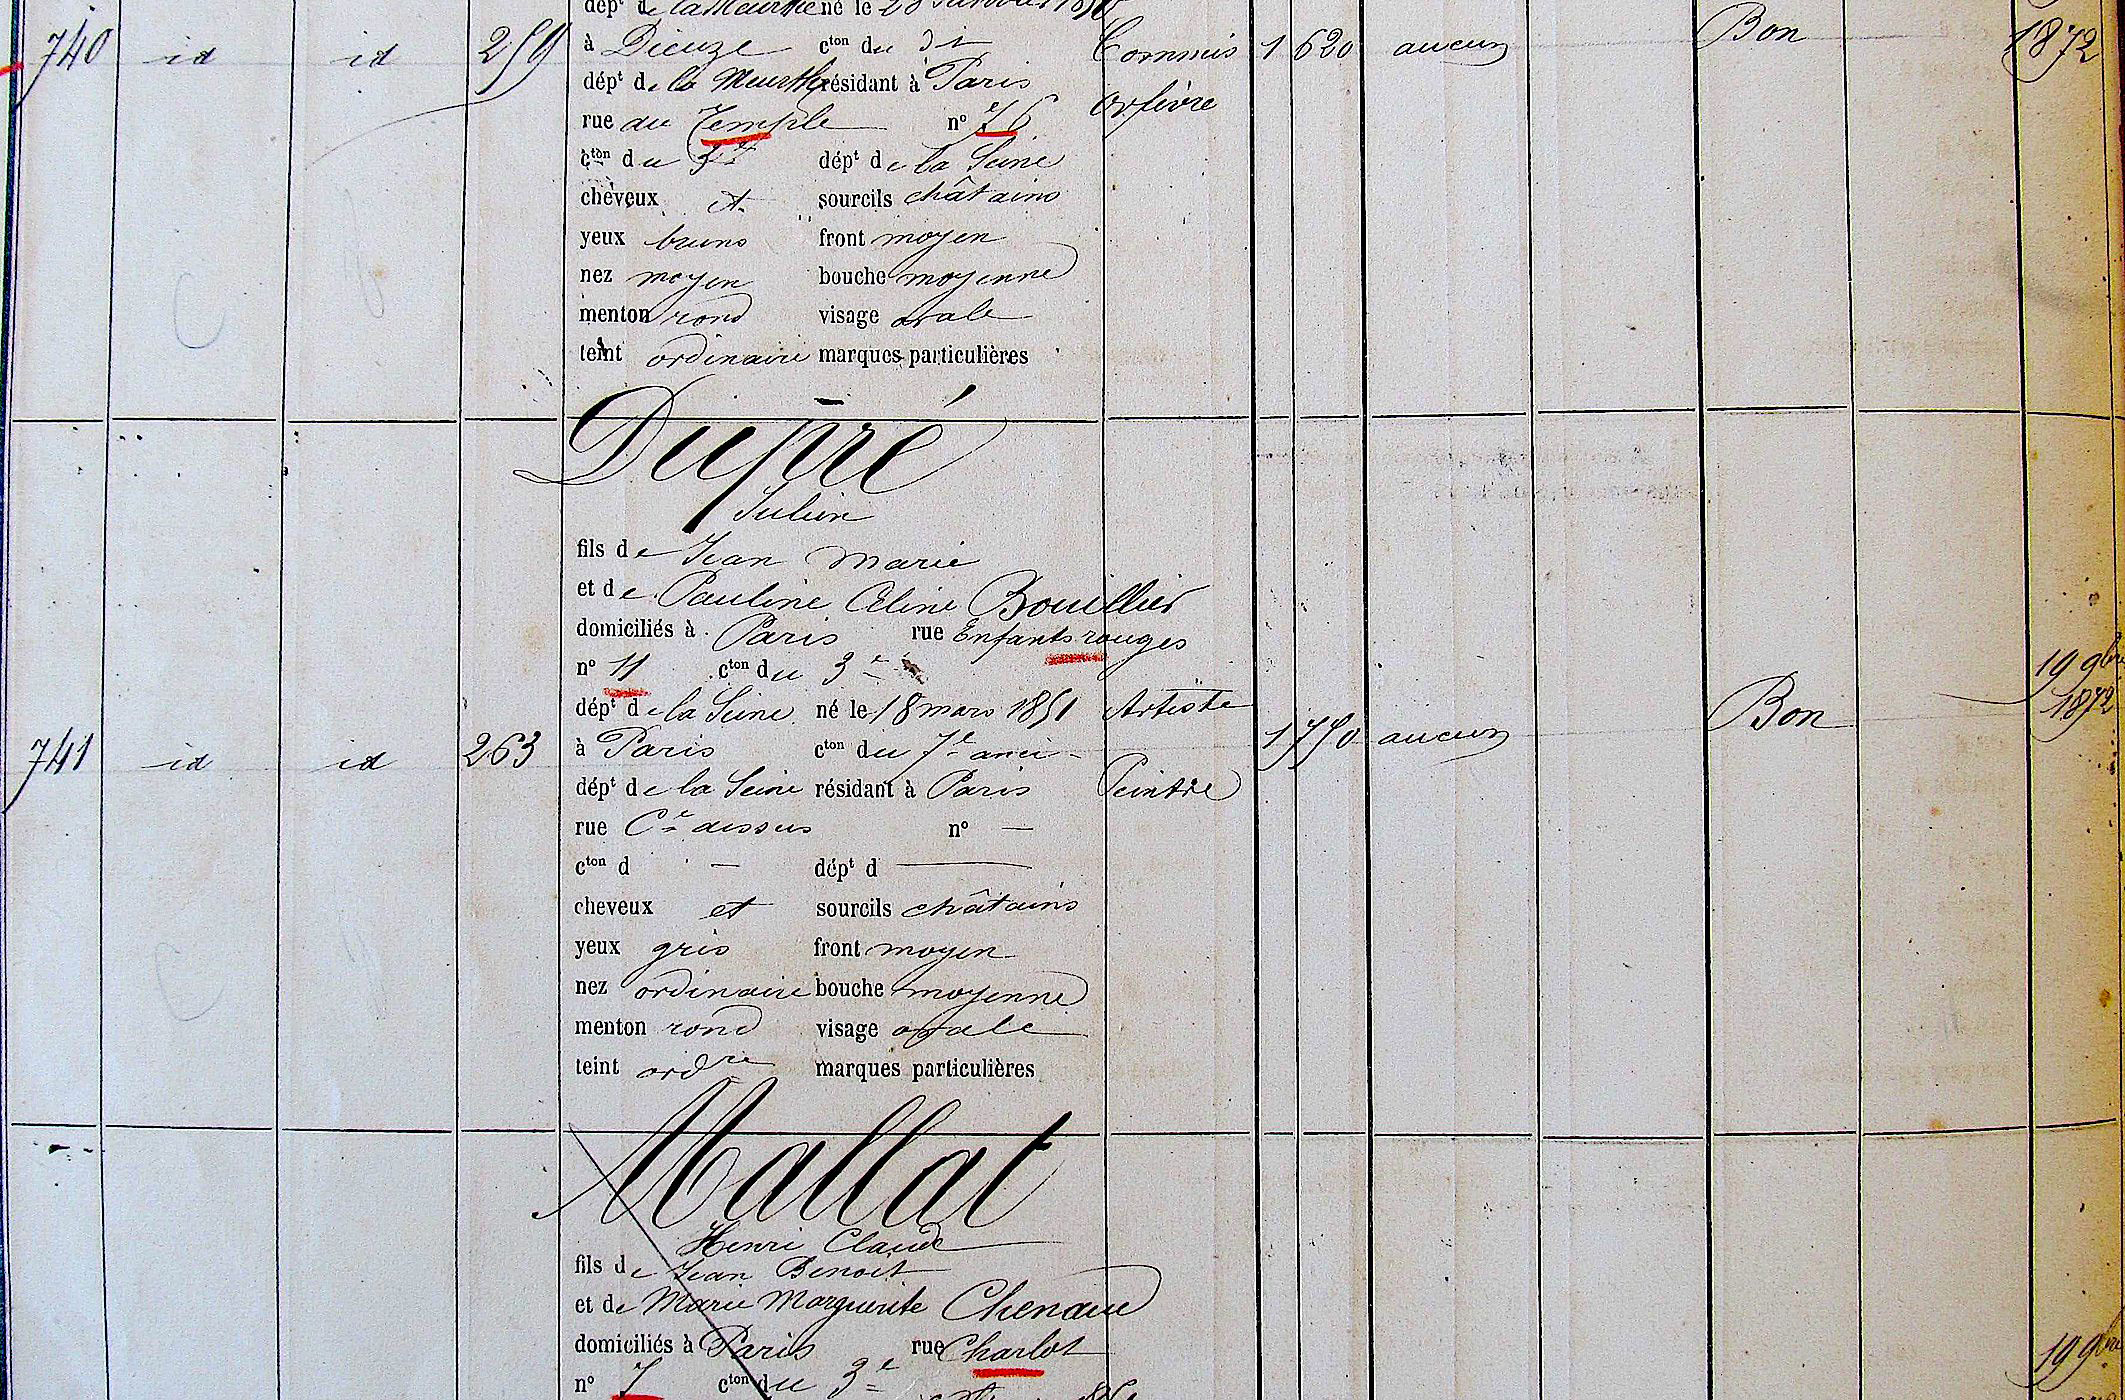 dépt de la Meurthe né le 28 Janvier 1850
740 id id 259 à Dieuze cton du di Commis 1 620 aucun Bon 1872
dépt de la Meurthe résidant à Paris Orfèvre
rue du Temple n° 76
cton du 3e dépt de la Seine
cheveux et sourcils châtains
yeux bruns front moyen
nez moyen bouche moyenne
menton rond visage ovale
teint ordinaire marques particulières
Dupré
Julien
fils de Jean Marie
et de Pauline Céline Bouillier
domiciliés à Paris rue Enfants rouges
n° 11 cton du 3e
dépt de la Seine né le 18 mars 1851 Artiste 19 9bre 1872
741 id id 263 à Paris cton du 7e anci 1 750 aucun Bon
dépt de la Seine résidant à Paris Peintre
rue Ce dessus n° —
cton d — dépt d —
cheveux et sourcils châtains
yeux gris front moyen
nez ordinaire bouche moyenne
menton rond visage ovale
teint ordre marques particulières
Mallat
Henri Claude
fils de Jean Benoit
et de Marie Marguerite Chenaud
domiciliés à Paris rue Charlot
n° 7 cton du 3e 19 9bre